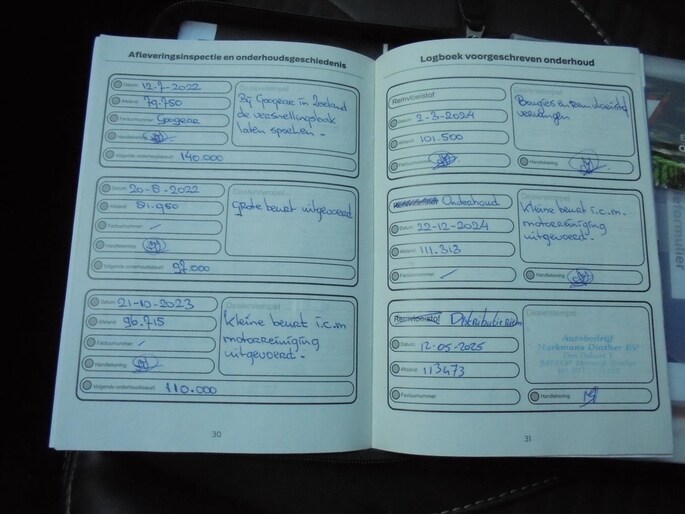 Afleveringsinspectie en onderhoudsgeschiedenis
Datum 12-7-2022
79.750
Factuurnummer Gogear
Handtekening
Volgende onderhoudsbeurt 140.000
Bij Gogear in Zeeland
de versnellingsbak
laten spoelen -
Datum 20-8-2022
Afstand 81.950
Factuurnummer
Handtekening
Volgende onderhoudsbeurt 97.000
Grote beurt uitgevoerd
Datum 21-10-2023
Afstand 96.715
Factuurnummer
Handtekening
Volgende onderhoudsbeurt 110.000
Dealerstempel
Kleine beurt i.c.m
motorreiniging
uitgevoerd -
30
Logboek voorgeschreven onderhoud
Remvloeistof
Datum 2-3-2024
Afstand 101.500
Factuurnummer
Bougies en remvloeistof
vervangen
Handtekening
Onderhoud
Datum 22-12-2024
Afstand 111.313
Factuurnummer
Dealerstempel
Kleine beurt i.c.m.
motorreiniging
uitgevoerd -
Handtekening
Remvloeistof Distributieriem
Datum 12-05-2025
Afstand 113473
Factuurnummer
Dealerstempel
Autobedrijf
Handtekening
31